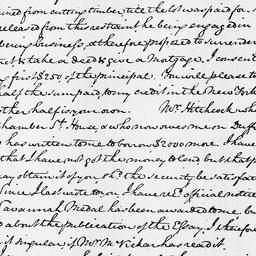 ained from cutting timber, till the lot was paid for.
released from this restraint, he being engaged in
bering business, & therefore proposed to surrender
ct & take a deed & give a Mortgage. I consent
g first $250 of the principal. You will please to
half the sum paid, to my credit in the New York
other half is your own. Mr. Hitchcock wh
Chamber St. House, & who now owes me on Duff
has written to me to borrow $2000 more. I have
that I have not got the money to lend, but that p
ay obtain it of you if the security be satisfac
Since I last wrote you I have recd. official notice
Savannah Medal has been awarded to me, bu
about the publication of the Essay. I therefore
it singular if Mr. McVickar has read it.